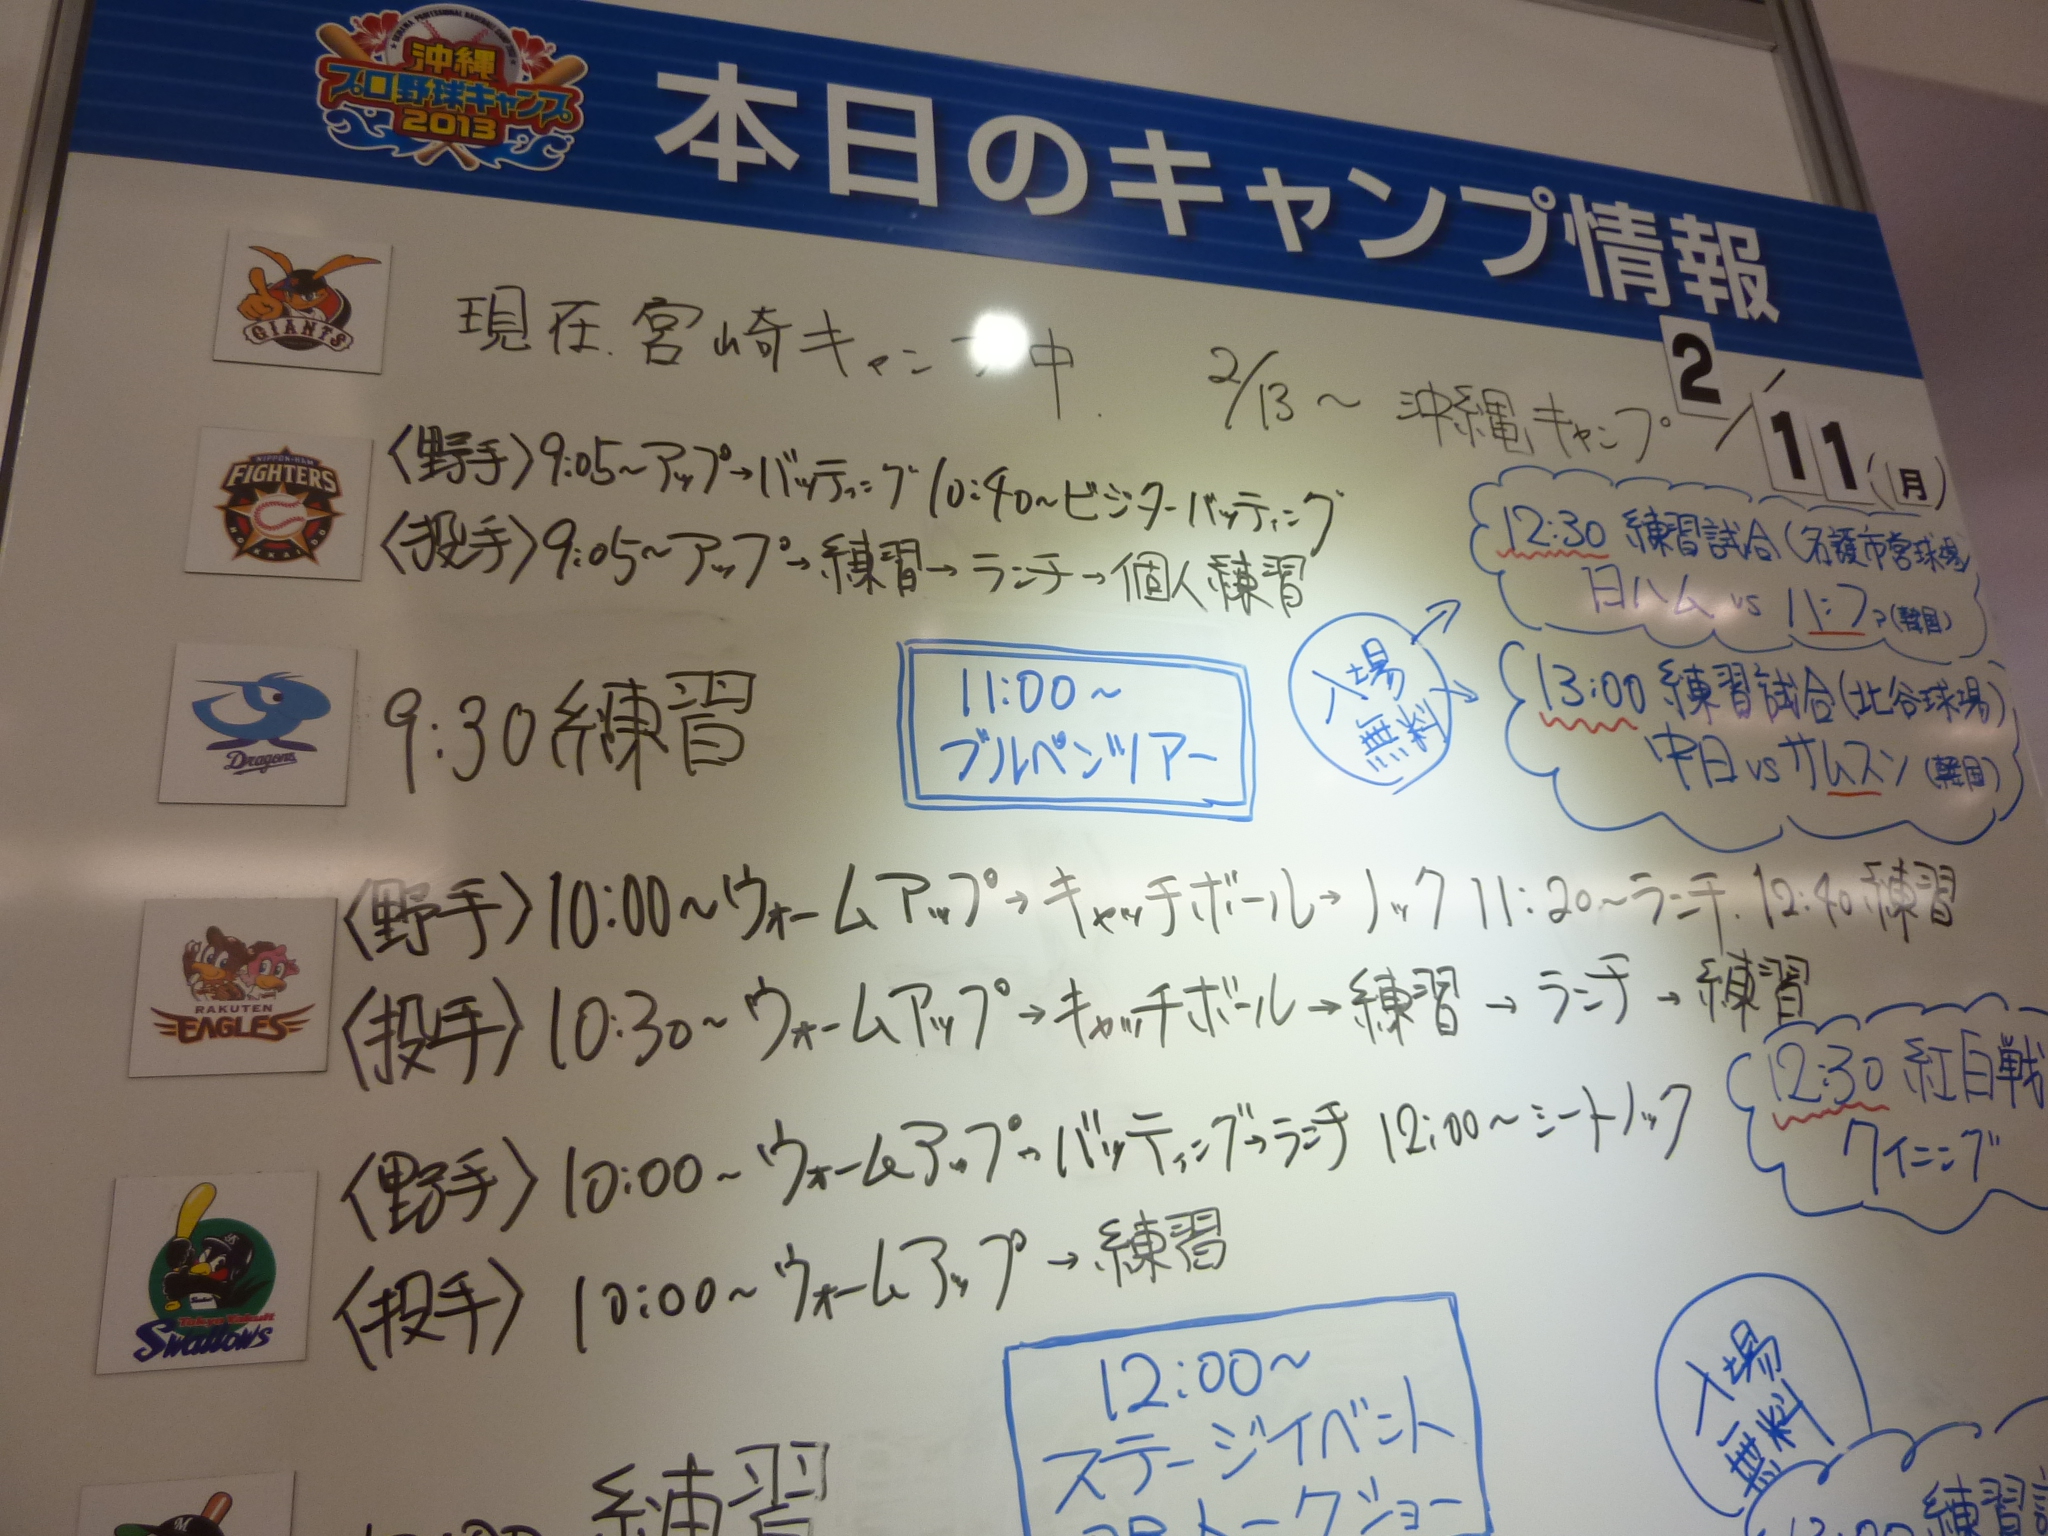 沖縄
プロ野球キャンプ
2013
本日のキャンプ情報
2/11(月)
GIANTS
現在宮崎キャンプ中. 2/13～沖縄キャンプ
NIPPON-HAM
FIGHTERS
HOKKAIDO
〈野手〉9:05～アップ→バッティング 10:40～ビジターバッティング
〈投手〉9:05～アップ→練習→ランチ→個人練習
12:30 練習試合(名護市営球場)
日ハム vs ハンファ(韓国)
入場
無料
13:00 練習試合(北谷球場)
中日 vs サムスン(韓国)
Dragons
9:30 練習
11:00～
ブルペンツアー
RAKUTEN
EAGLES
〈野手〉10:00～ウォームアップ→キャッチボール→ノック 11:20～ランチ. 12:40 練習
〈投手〉10:30～ウォームアップ→キャッチボール→練習→ランチ→練習
12:30 紅白戦
7イニング
Tokyo Yakult
Swallows
〈野手〉10:00～ウォームアップ→バッティング→ランチ 12:00～シートノック
〈投手〉10:00～ウォームアップ→練習
12:00～
ステージイベント
トークショー
入場
無料
練習
13:00 練習試